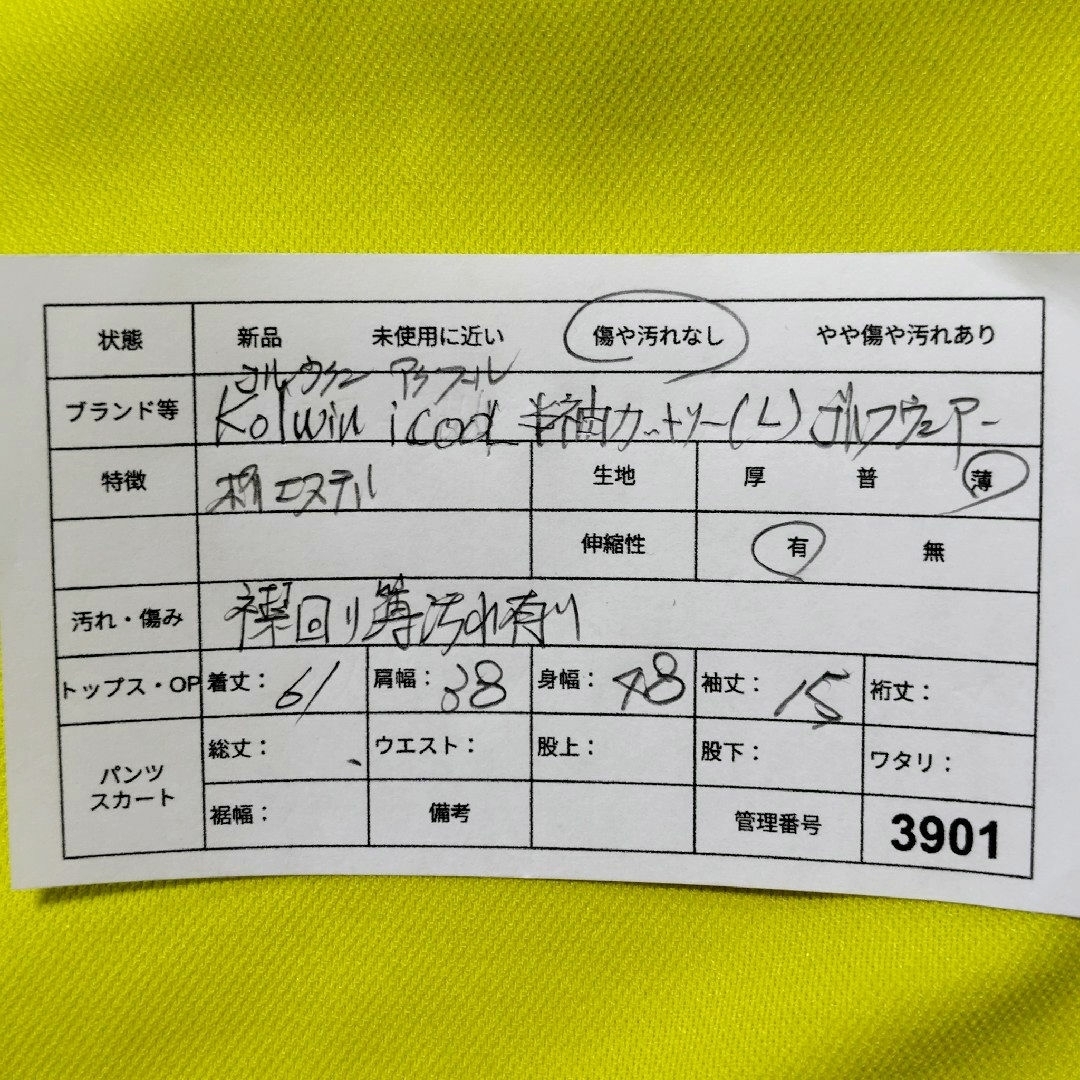 状態 新品 未使用に近い 傷や汚れなし やや傷や汚れあり
コルウィン アイクール
ブランド等 Kolwin icool 半袖カットソー(L)ゴルフウェアー
特徴 ポリエステル 生地 厚 普 薄
伸縮性 有 無
汚れ・傷み 襟回り薄汚れ有り
トップス・OP 着丈: 61 肩幅: 38 身幅: 48 袖丈: 15 裄丈:
パンツ 総丈: ウエスト: 股上: 股下: ワタリ:
スカート 裾幅: 備考 管理番号 3901